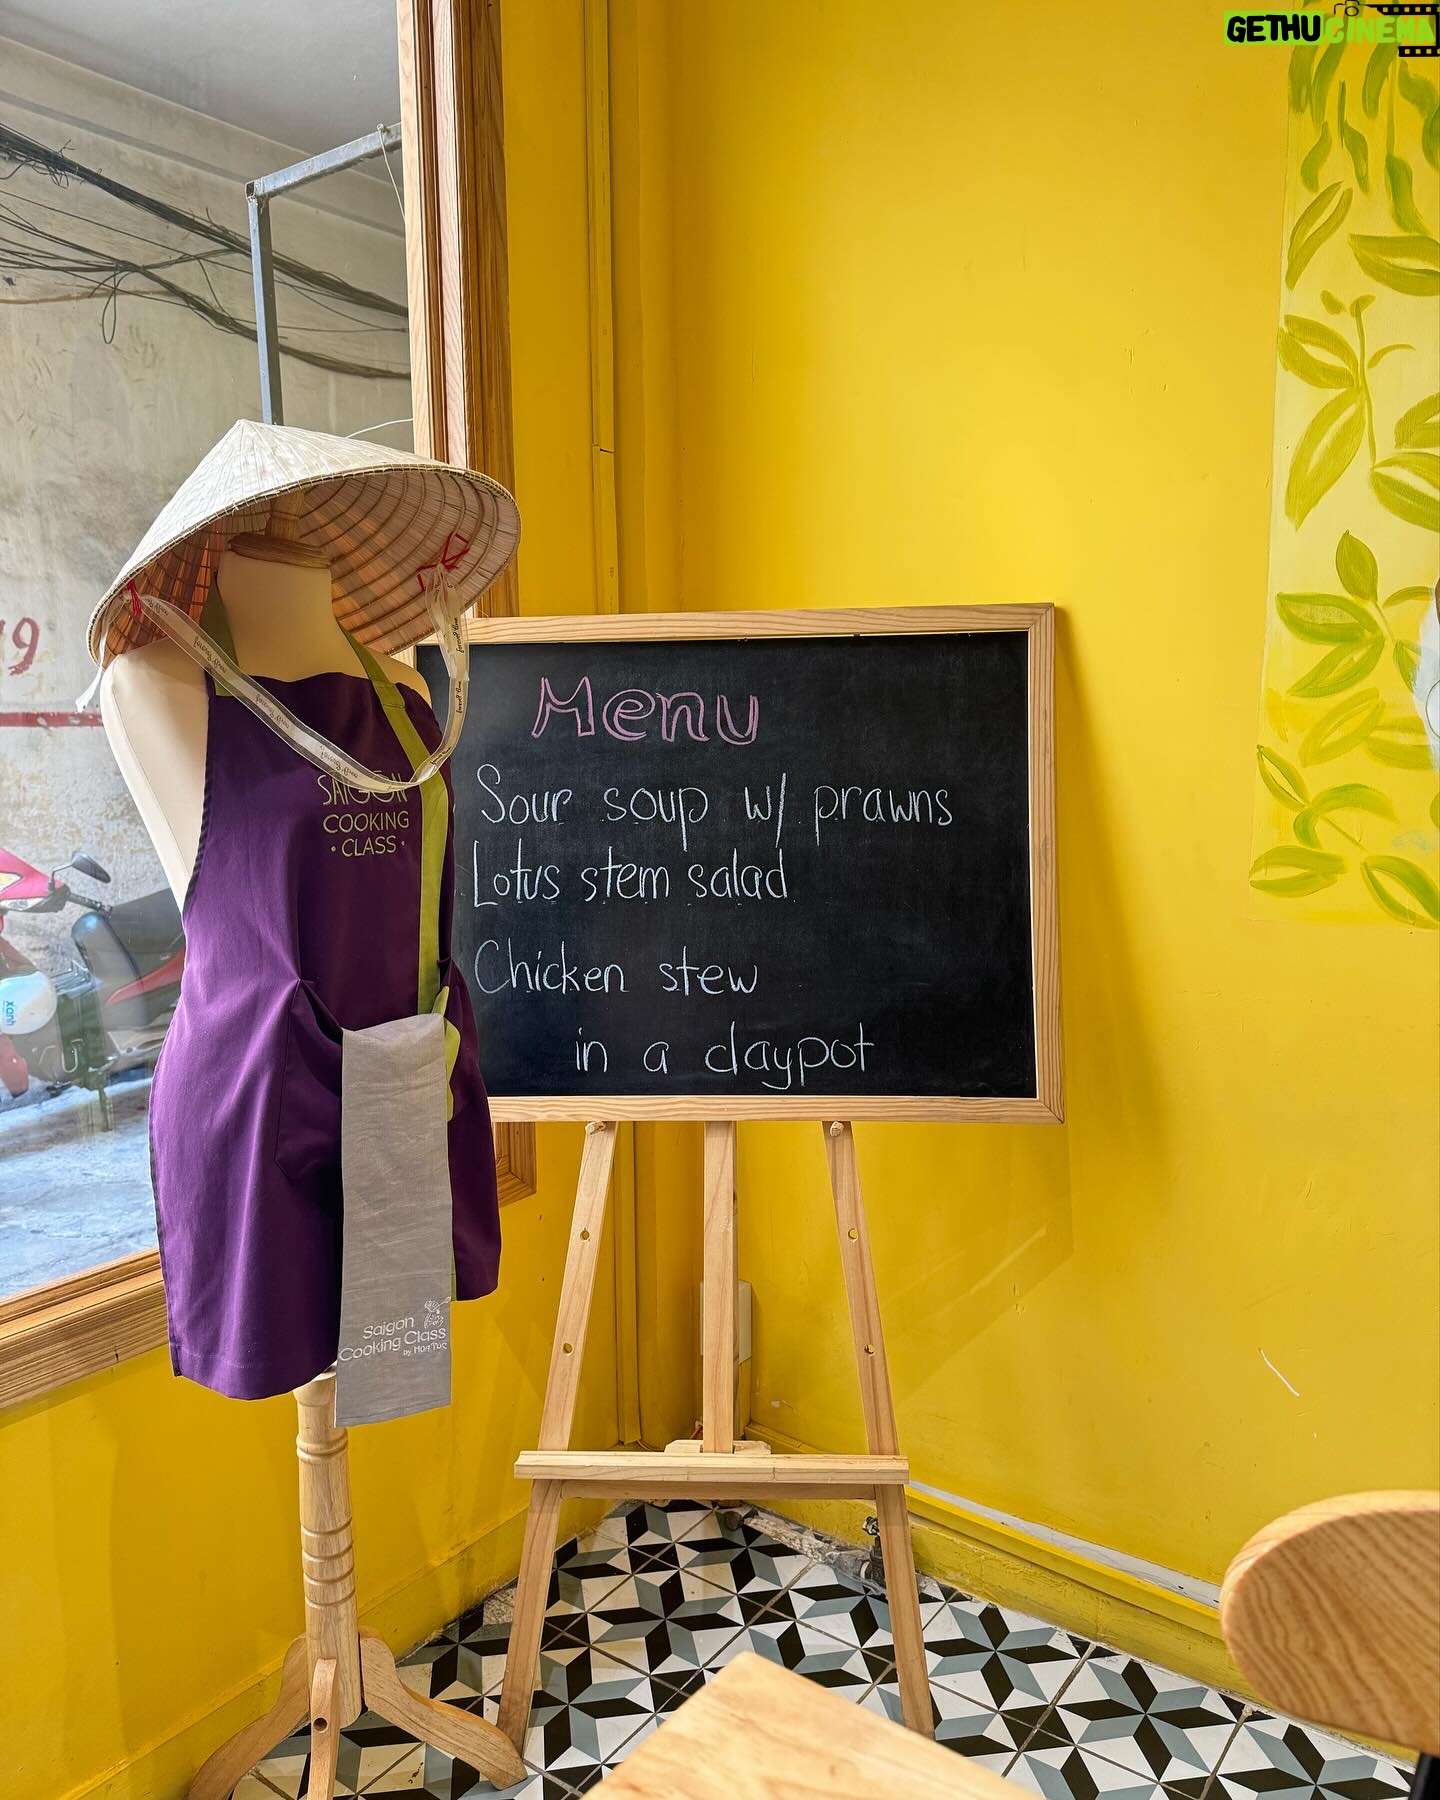 GETHUCINEMA
Menu
Sour soup w/ prawns
Lotus stem salad
Chicken stew
in a claypot
SAIGON
COOKING
• CLASS •
Saigon
Cooking Class
by HOA TUC
xanh
19